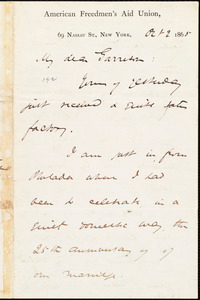 American Freedmen's Aid Union,
69 Nassau St., New York, Oct 2 1865
My dear Garrison:
Yours of yesterday
just received &
factory.
I am just in from
Philada where I had
been to celebrate in a
quiet domestic way the
25th anniversary of
our marriage.